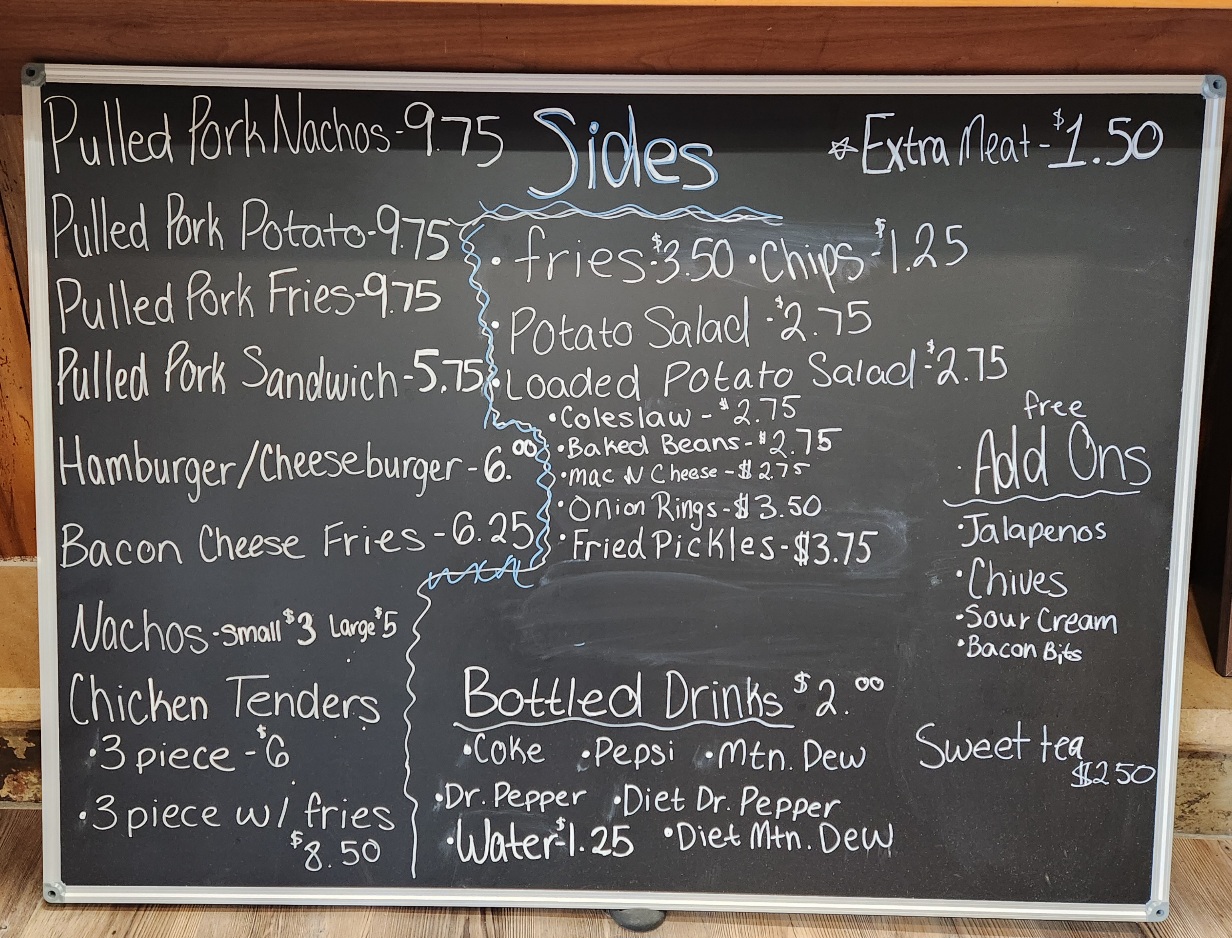 Pulled Pork Nachos-9.75
Pulled Pork Potato-9.75
Pulled Pork Fries-9.75
Pulled Pork Sandwich-5.75
Hamburger/Cheeseburger-6.00
Bacon Cheese Fries-6.25
Nachos-small $3 Large $5
Chicken Tenders
•3 piece-$6
•3 piece w/ fries
$8.50
Sides
☆Extra Meat-$1.50
•fries-$3.50 •Chips-$1.25
•Potato Salad-$2.75
•Loaded Potato Salad-$2.75
•Coleslaw-$2.75
•Baked Beans-$2.75
•mac N Cheese-$2.75
•Onion Rings-$3.50
•Fried Pickles-$3.75
free
Add Ons
•Jalapenos
•Chives
•Sour Cream
•Bacon Bits
Bottled Drinks $2.00
•Coke •Pepsi •Mtn. Dew
•Dr. Pepper •Diet Dr. Pepper
•Water-$1.25 •Diet Mtn. Dew
Sweet tea
$2.50